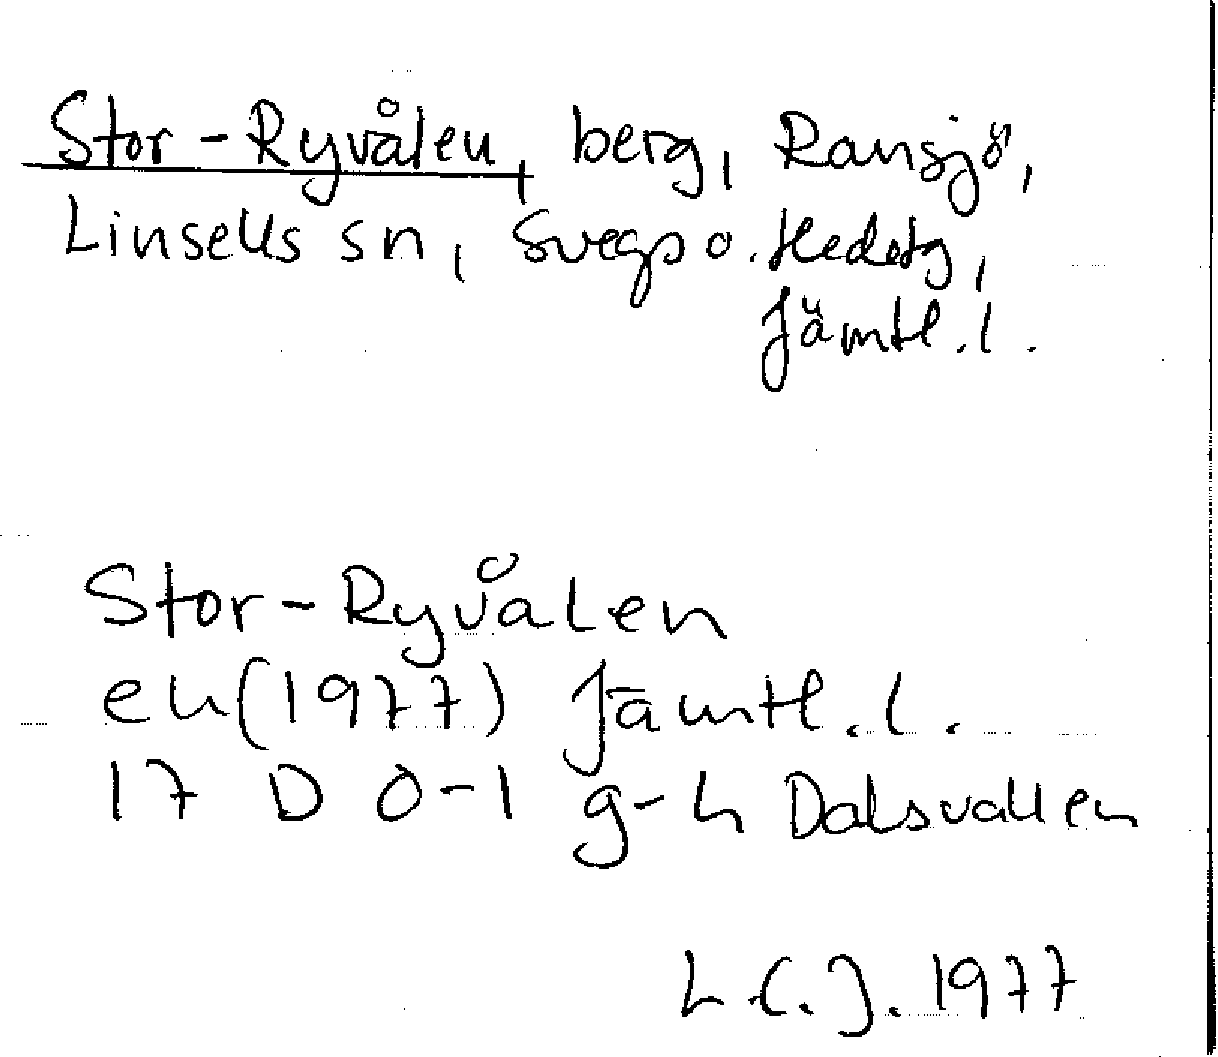 Stor-Ryvålen, berg, Ransjö,
Linsells sn, Svegs o. Hedetg,
Jämtl. l.
Stor-Ryvålen
ek(1977) Jämtl. l.
17 D 0-1 g-h Dalsvallen
L.C.J. 1977